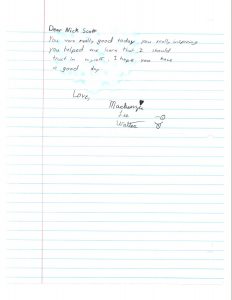 Dear Nick Scott
You were really good today you really inspiring
you helped me learn that I should
trust in myself. I hope you have
a good day.
Love,
Mackenzie
Lee
Walker